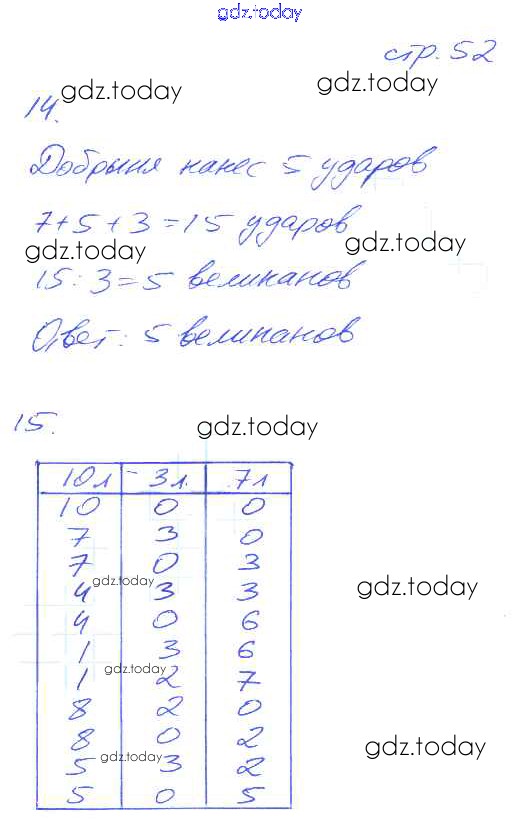 gdz.today
стр. 52
gdz.today
gdz.today
14.
Добрыня нанес 5 ударов
7+5+3=15 ударов
gdz.today
gdz.today
15:3=5 великанов
Ответ: 5 великанов
15.
gdz.today
10л 3л. 7л
10 0 0
7 3 0
7 0 3
gdz.today
gdz.today
4 3 3
4 0 6
1 3 6
gdz.today
1 2 7
8 2 0
8 0 2
gdz.today
gdz.today
5 3 2
5 0 5